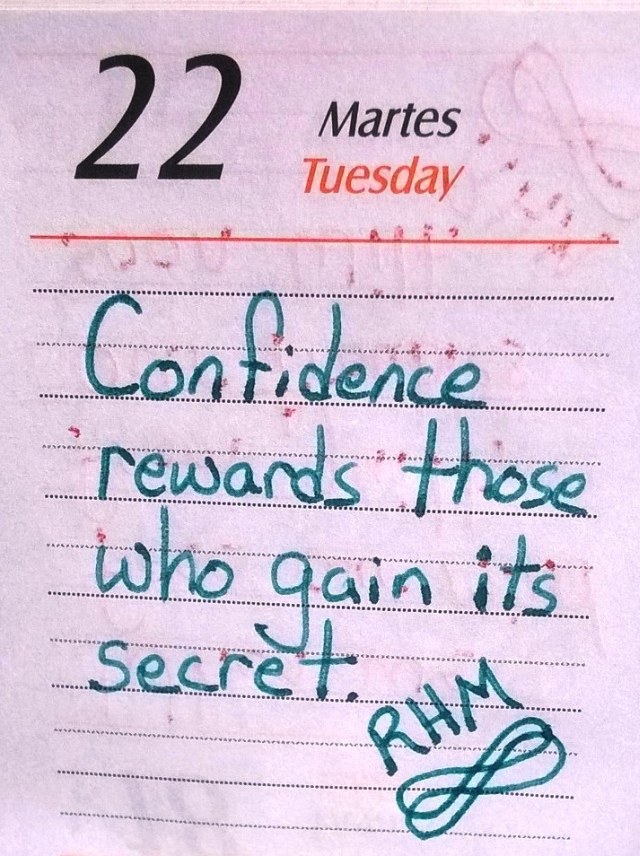 22
Martes
Tuesday
Confidence
rewards those
who gain its
secret.
RHM